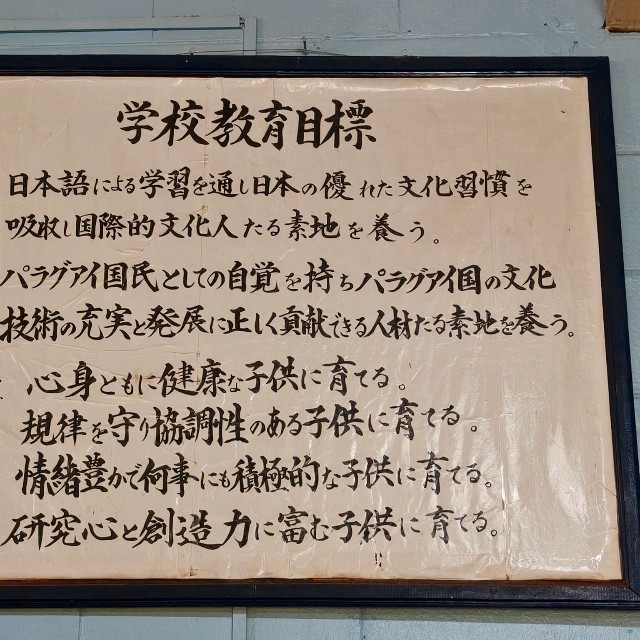 学校教育目標
日本語による学習を通し日本の優れた文化習慣を
吸収し国際的文化人たる素地を養う。
パラグアイ国民としての自覚を持ちパラグアイ国の文化
技術の充実と発展に正しく貢献できる人材たる素地を養う。
心身ともに健康な子供に育てる。
規律を守り協調性のある子供に育てる。
情緒豊かで何事にも積極的な子供に育てる。
研究心と創造力に富む子供に育てる。